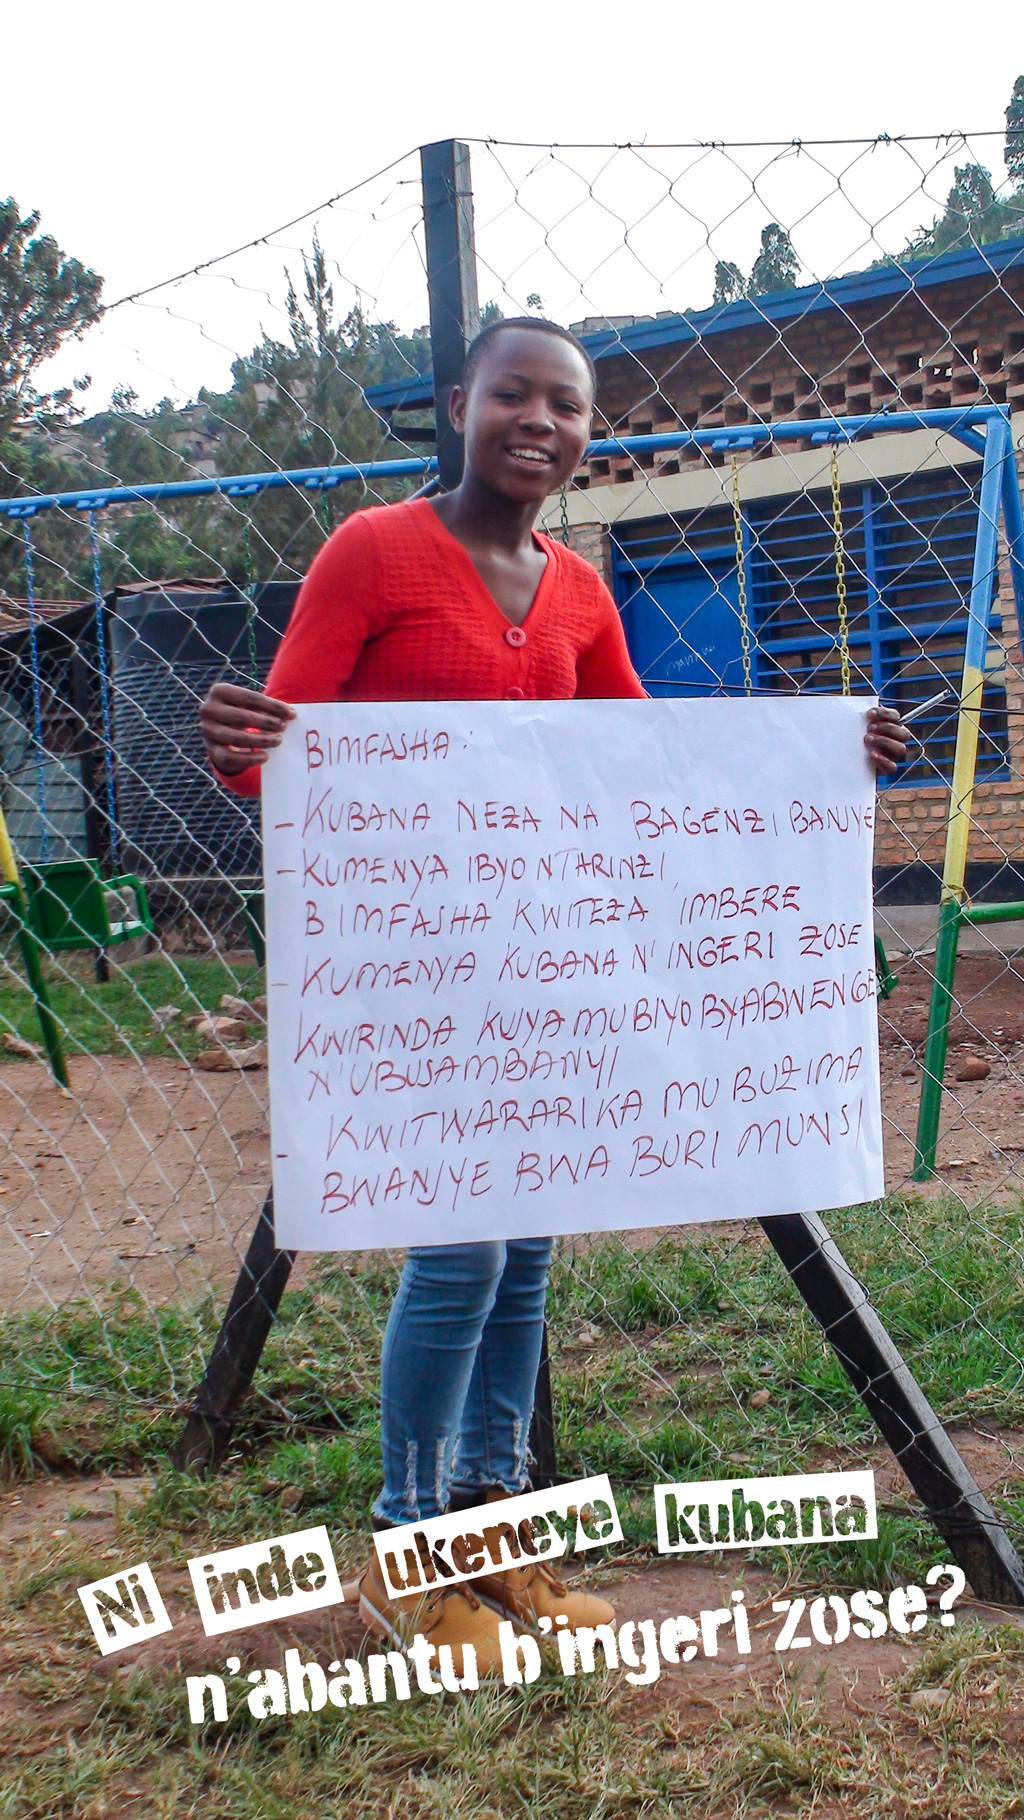 BIMFASHA:
- KUBANA NEZA NA BAGENZI BANJYE
- KUMENYA IBYO NTARINZI
BIMFASHA KWITEZA IMBERE
- KUMENYA KUBANA N'INGERI ZOSE
KWIRINDA KUJYA MU BIYOBYABWENGE
N'UBUSAMBANYI
- KWITWARARIKA MU BUZIMA
BWANJYE BWA BURI MUNSI
Ni inde ukeneye kubana
n'abantu b'ingeri zose?